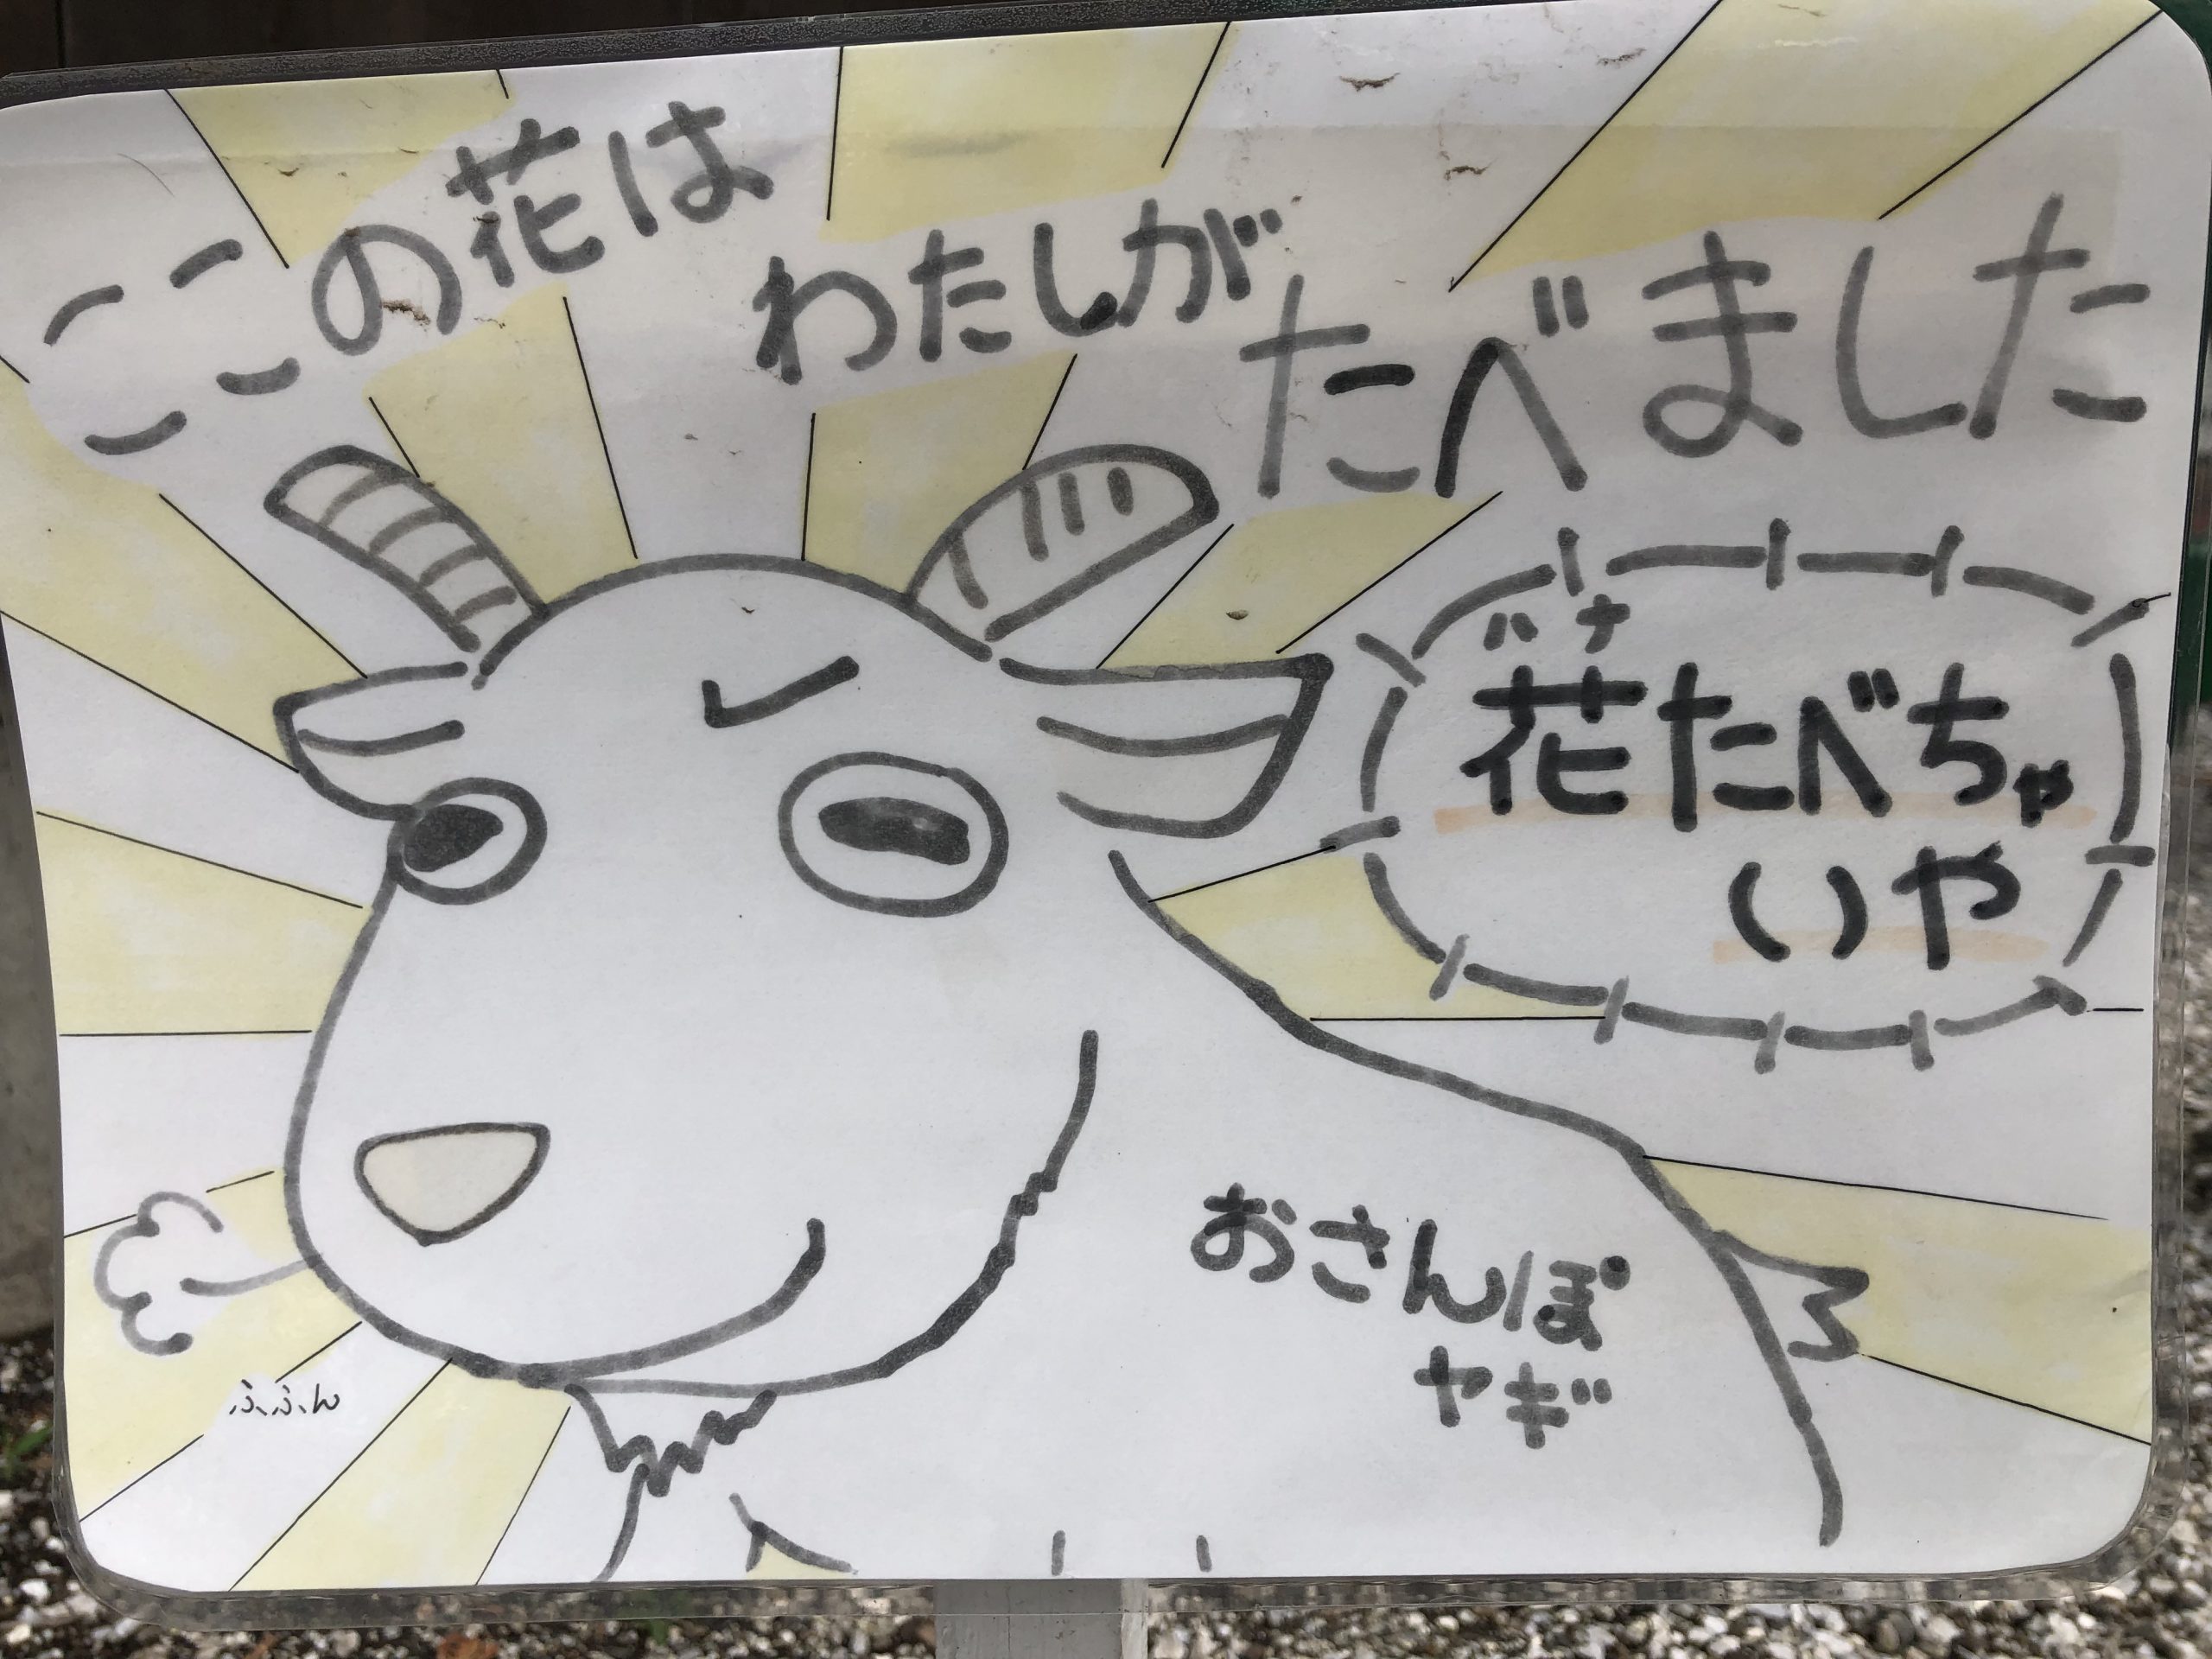 ここの花は
わたしが
たべました
バナ
花たべちゃ
いや
おさんぽ
ヤギ
ふふん